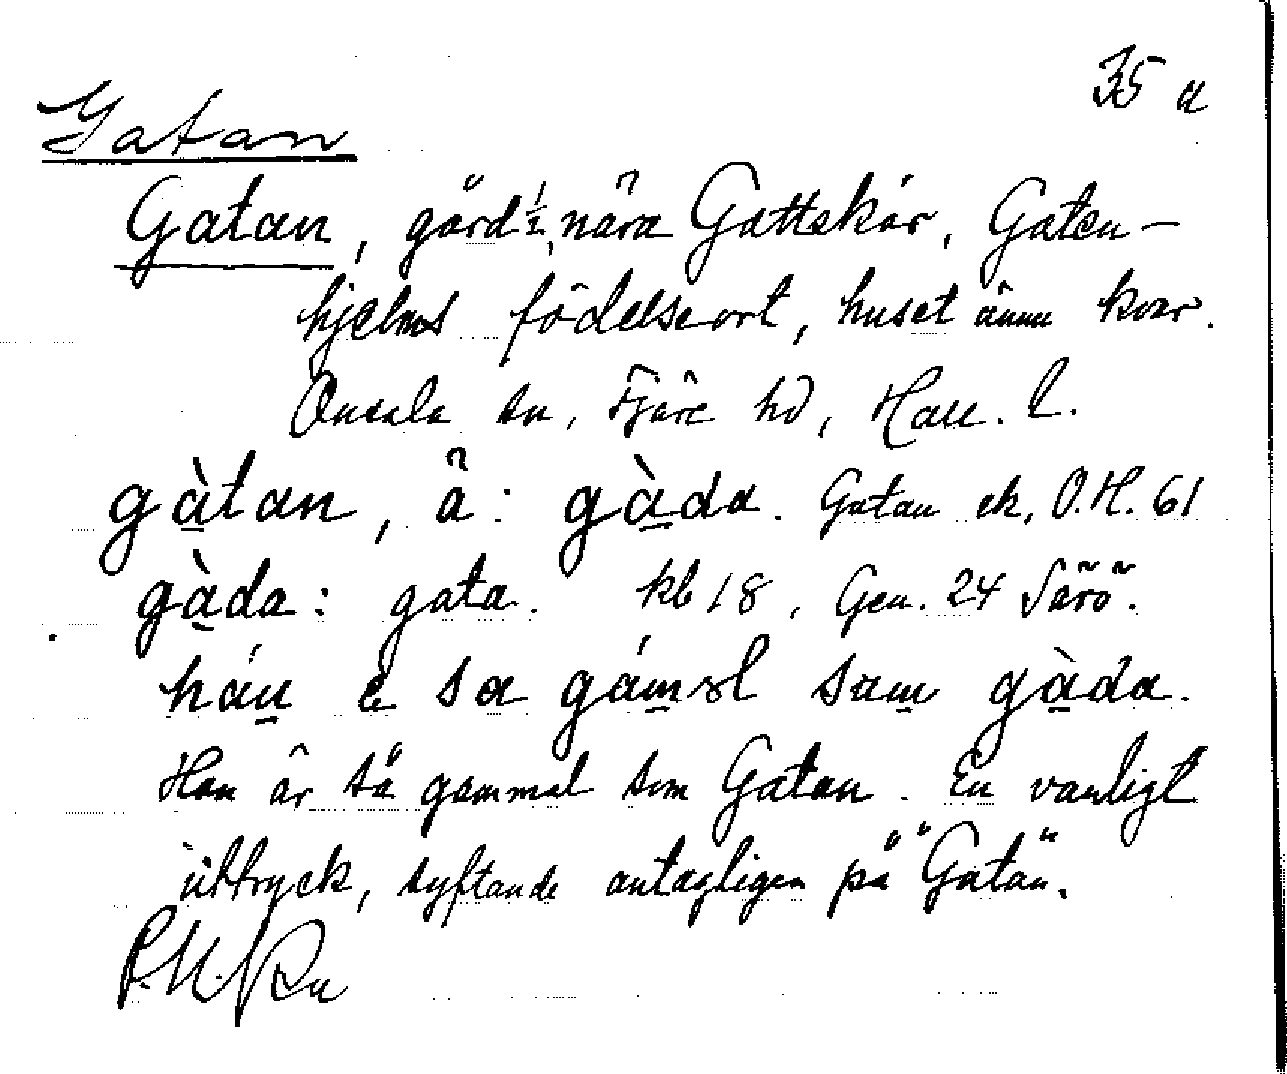 35 a
Gatan
Gatan, gård 1/2, nära Gottskär, Gaten-
hjelms födelseort, huset ännu kvar.
Onsala sn, Fjäre hd, Hall. l.
gàtan, å: gàda. Gatan ek, O.H. 61
gàda: gata. kb 18, Gen. 24 Särö.
hán e sa gáməl sam gàda.
Han är så gammal som Gatan. En vanligt
uttryck, syftande antagligen på "Gatan".